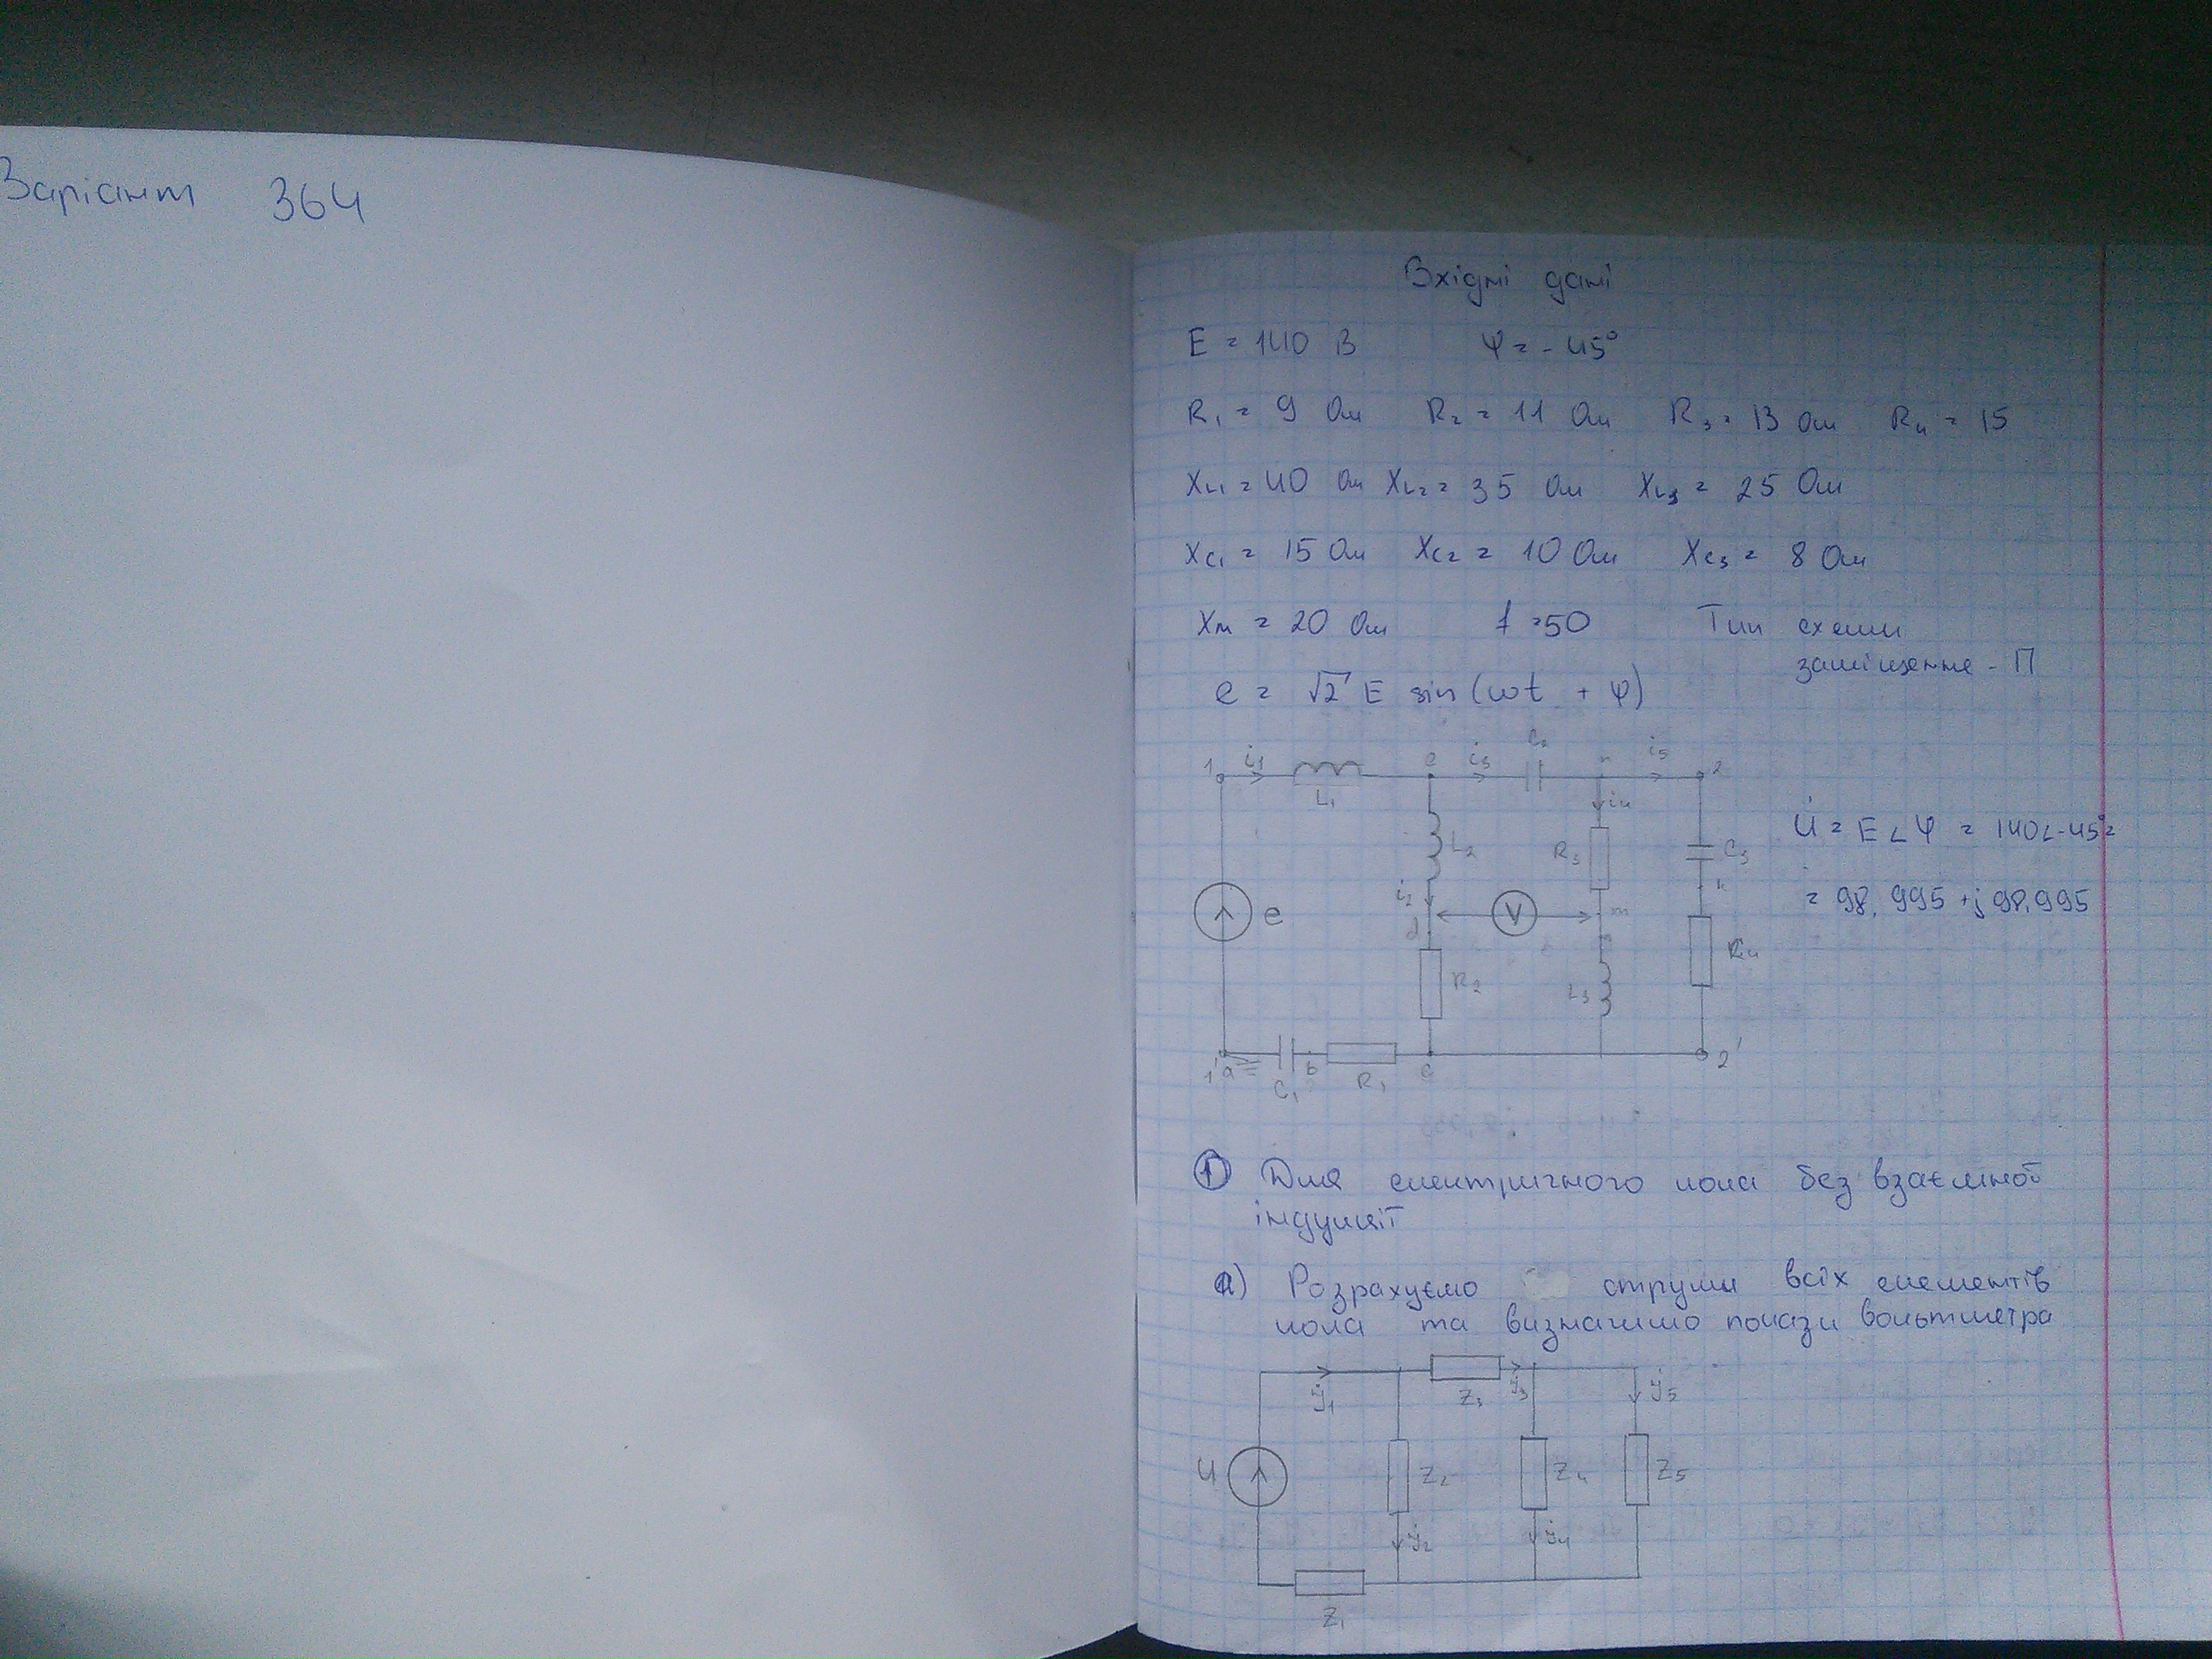 Варіант 364
Вхідні дані
E = 140 В φ = -45°
R₁ = 9 Ом R₂ = 11 Ом R₃ = 13 Ом R₄ = 15
XL₁ = 40 Ом XL₂ = 35 Ом XL₃ = 25 Ом
Xc₁ = 15 Ом Xc₂ = 10 Ом Xc₃ = 8 Ом
Xм = 20 Ом f = 50 Тип схеми
заміщення - П
e = √2 E sin(ωt + φ)
1 i₁ L₁ e i₃ C₂ n i₅ 2
i₄
L₂ R₃ C₃
U̇ = E∠φ = 140∠-45° =
= 98,995 + j98,995
i₂ V m k
e d
R₂ L₃ R₄
1' a C₁ b R₁ c 2'
① Для електричного кола без взаємної
індукції
а) Розрахуємо струми всіх елементів
кола та визначимо покази вольтметра
J̇₁ Z₃ J̇₃ J̇₅
U Z₂ Z₄ Z₅
J̇₂ J̇₄
Z₁